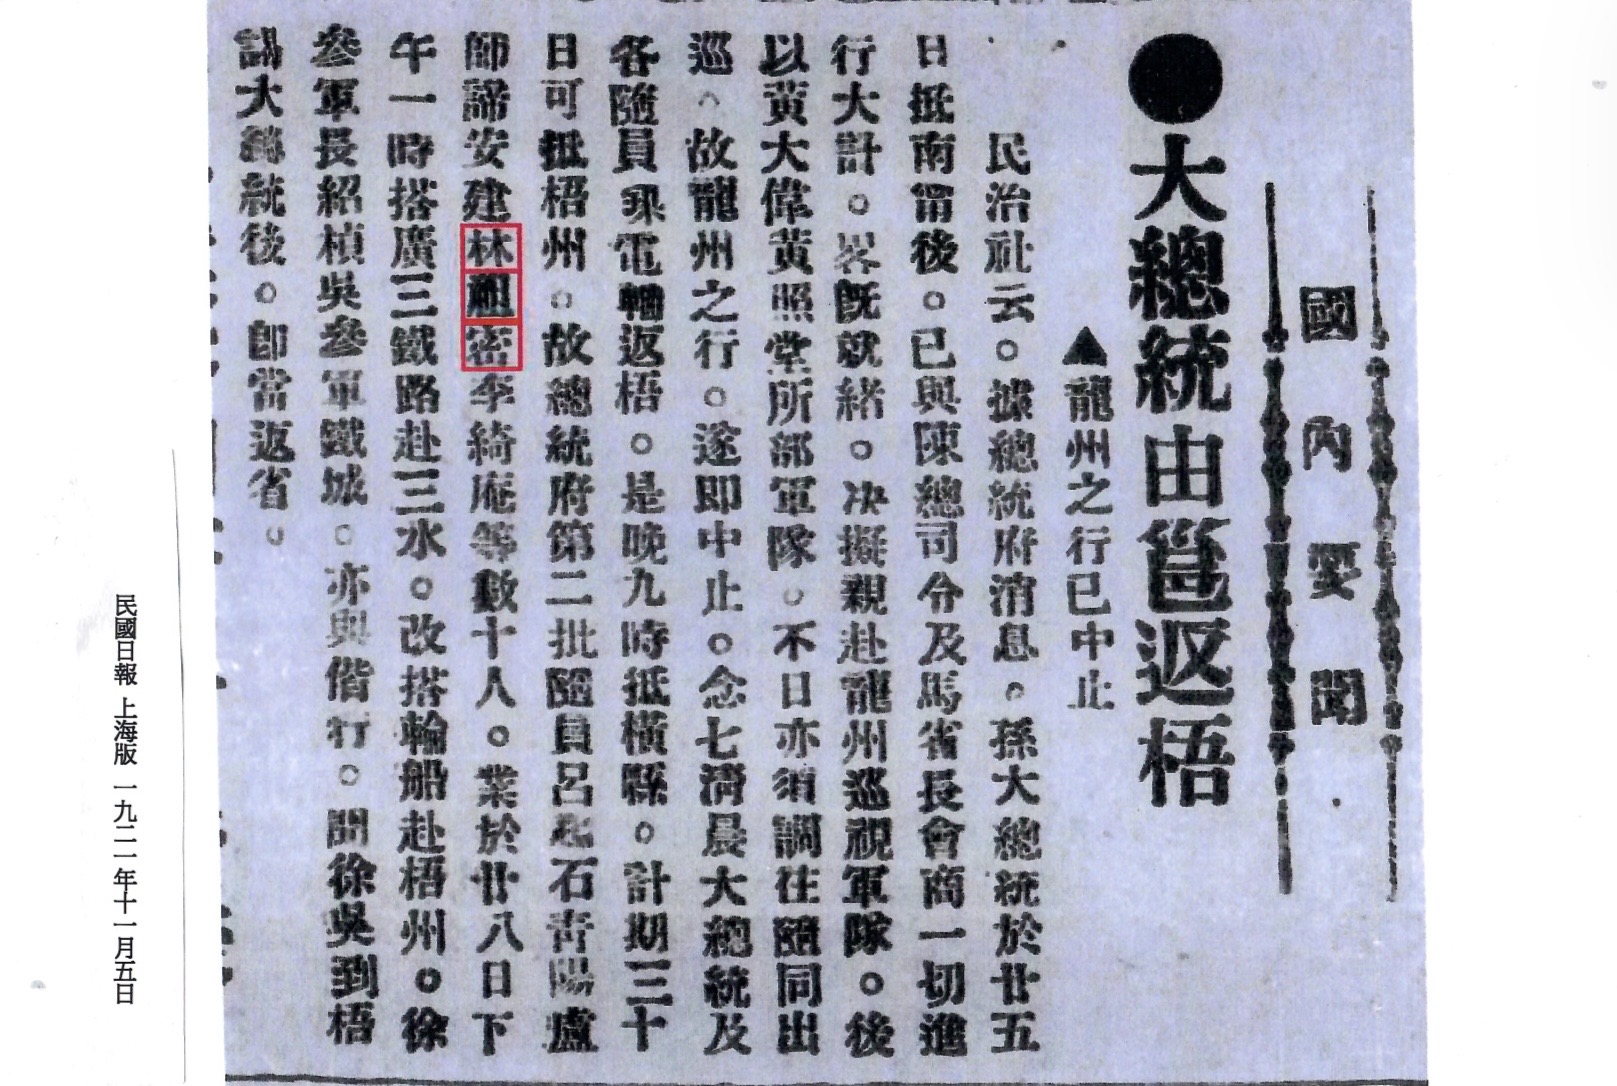 國內要聞
●大總統由邕返梧
▲龍州之行已中止
民治社云。據總統府消息。孫大總統於廿五
日抵南甯後。已與陳總司令及馬省長會商一切進
行大計。畧既就緒。决擬親赴龍州巡視軍隊。後
以黃大偉黃照堂所部軍隊。不日亦須調往隨同出
巡。故龍州之行。遂即中止。念七清晨大總統及
各隨員乘電輪返梧。是晚九時抵橫縣。計期三十
日可抵梧州。故總統府第二批隨員呂志石青陽盧
師諦安建林祖密李綺庵等數十人。業於廿八日下
午一時搭廣三鐵路赴三水。改搭輪船赴梧州。徐
參軍長紹楨吳參軍鐵城。亦與偕行。聞徐吳到梧
謁大總統後。即當返省。
民國日報 上海版 一九二一年十一月五日